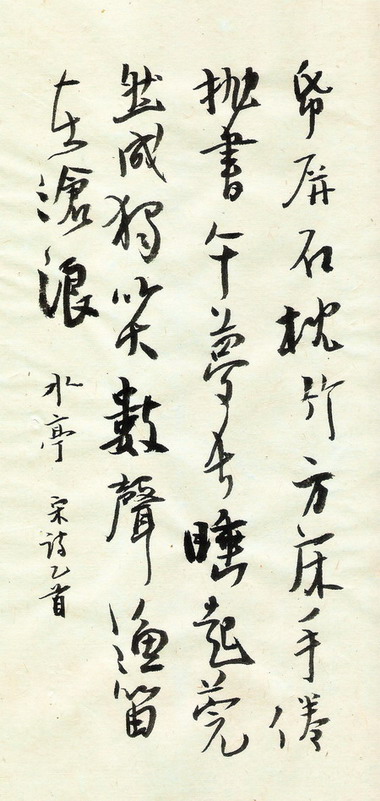 帋屏石枕竹方床手倦
抛書午夢長睡起莞
然成獨笑數聲漁笛
在滄浪
水亭 宋詩乙首